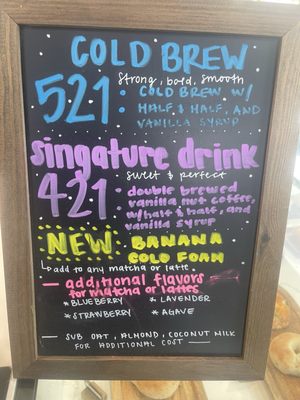 COLD BREW
strong, bold, smooth
521 : COLD BREW W/
HALF & HALF, AND
VANILLA SYRUP
singature drink
sweet & perfect
421 : double brewed
vanilla nut coffee,
w/half & half, and
vanilla syrup
NEW: BANANA
COLD FOAM
↳ add to any matcha or latte
— additional flavors —
for matcha or lattes
* BLUEBERRY * LAVENDER
* STRAWBERRY * AGAVE
— SUB OAT, ALMOND, COCONUT MILK
FOR ADDITIONAL COST —